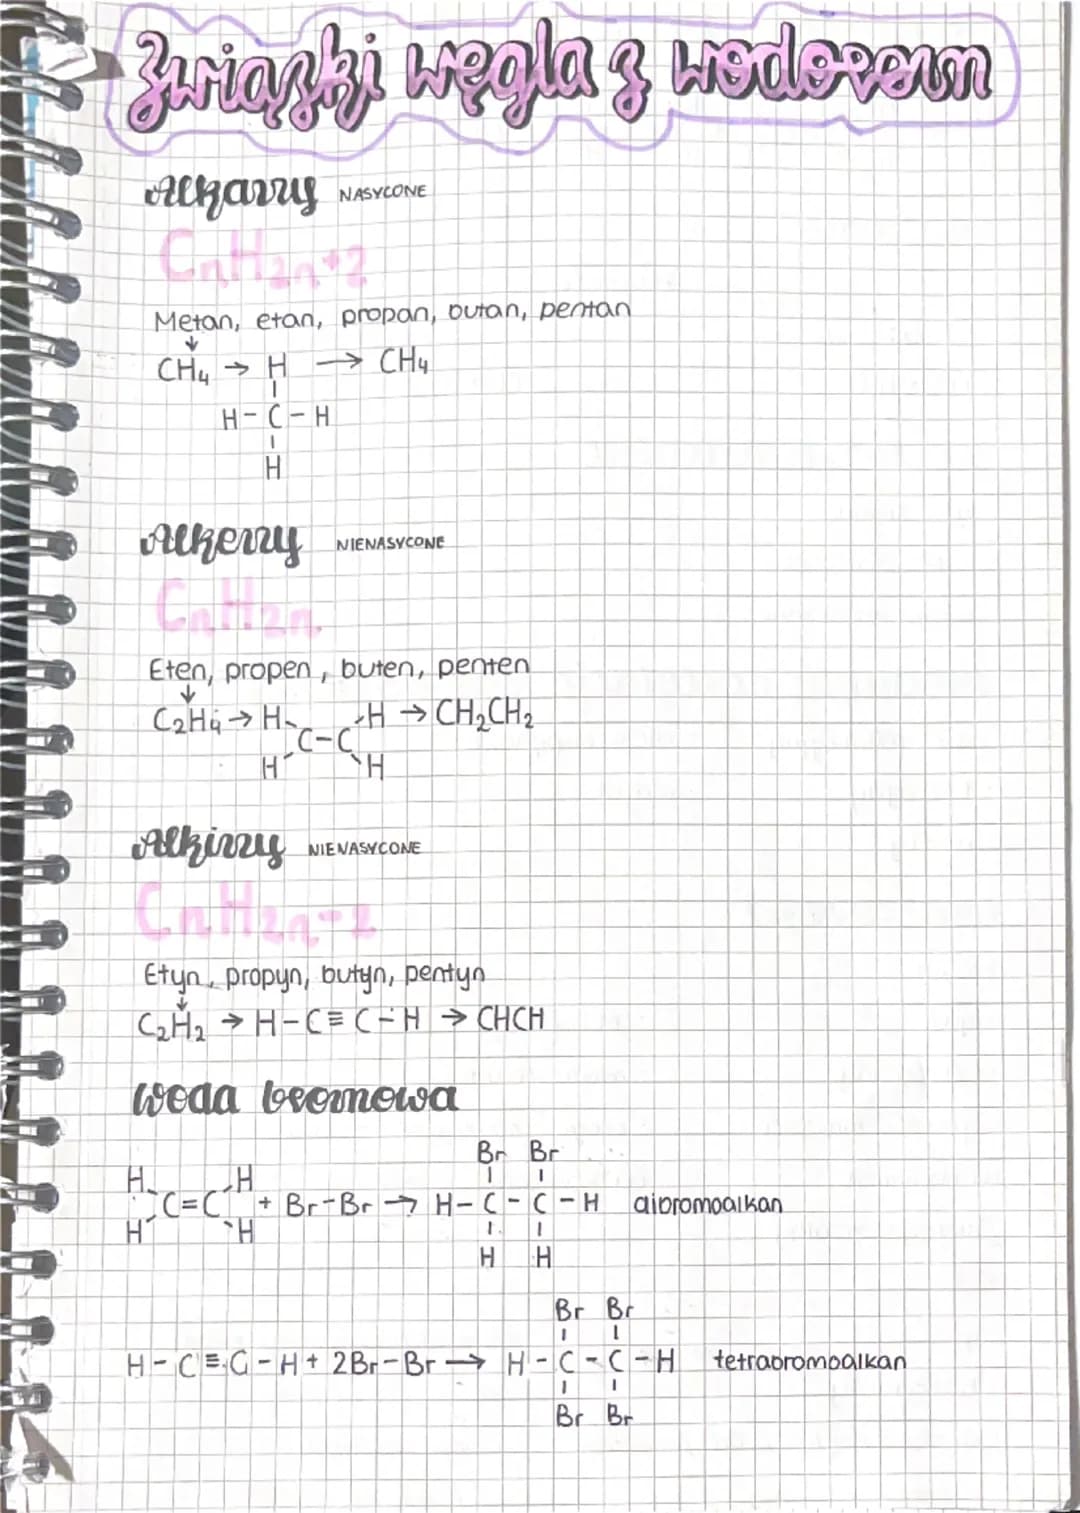 Związki węgla z wodorem
Alkany NASYCONE
CnH2n+2
Metan, etan, propan, butan, pentan
↓
CH₄ → H → CH₄
H - C - H
H
Alkeny NIENASYCONE
CnH2n
Eten, propen, buten, penten
↓
C₂H₄ → H H → CH₂CH₂
C-C
H H
Alkiny NIENASYCONE
CnH2n-2
Etyn, propyn, butyn, pentyn
↓
C₂H₂ → H-C≡C-H → CHCH
Woda bromowa
Br Br
H H
C=C + Br-Br → H-C-C-H dibromoalkan
H H
H H
Br Br
H-C≡C-H + 2Br-Br → H-C-C-H tetrabromoalkan
Br Br